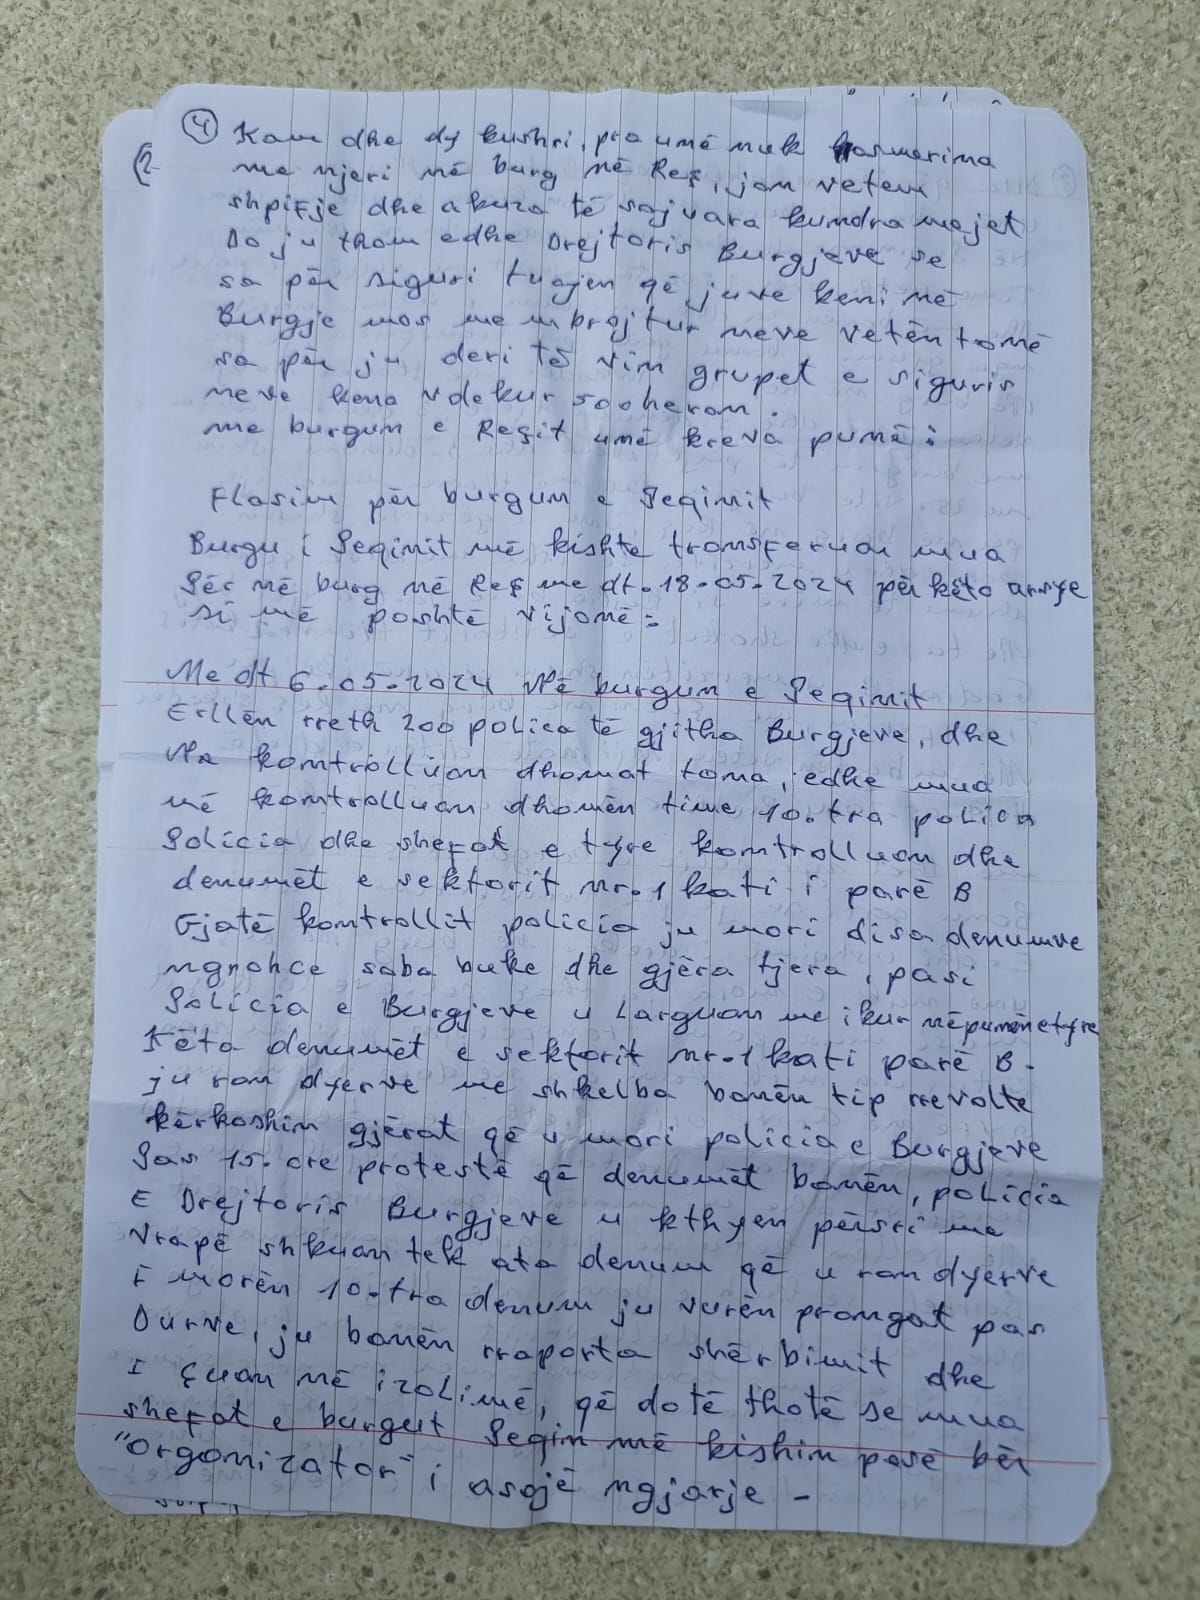 ④ Kam dhe dy kushri, pra umë nuk kasmerima
me njeri në burg në Reç, jan vetem
shpifje dhe akuza të sajuara kundra mejet
Do ju thom edhe Drejtoris Burgjeve se
sa për siguri tuajen që juve keni në
Burgje mos me mbrojtur neve vetën tonë
sa për ju deri të vim grupet e siguris
neve kena vdekur sooheram.
me burgum e Reçit umë kreva punë:
Flasim për burgum e Peqinit
Burgu i Peqinit më kishte transferuar mua
Për në burg në Reç me dt. 18.05.2024 për këto arsye
si më poshtë vijonë:
Me dt 6.05.2024 Në burgum e Peqinit
Erllën rreth 200 polica të gjitha Burgjeve, dhe
Na kontrolluan dhomat tona, edhe mua
më kontrolluan dhomën time 10.tra polica
Policia dhe shefat e tyre kontrolluan dhe
denumët e sektorit nr.1 kati i parë B
Gjatë kontrollit policia ju mori disa denumve
ngrohce saba buke dhe gjëra tjera, pasi
Policia e Burgjeve u Larguan me ikur në punën e tyre
Këta denumët e sektorit nr.1 kati parë B.
ju ran dyerve me shkelba bonën tip rrevolte
kërkoshin gjërat që u mori policia e Burgjeve
Pas 15.ore protestë që denumët bonën, policia
E Drejtoris Burgjeve u kthyen përsri me
Vrapë shkuan tek ata denum që u ran dyerve
E morën 10.tra denum ju vurën prangat pas
Durve, ju bonën rraporta shërbimit dhe
I çuan në izolimë, që do të thotë se mua
shefat e burgut Peqin më kishin pasë bër
"orgonizator" i asajë ngjarje -